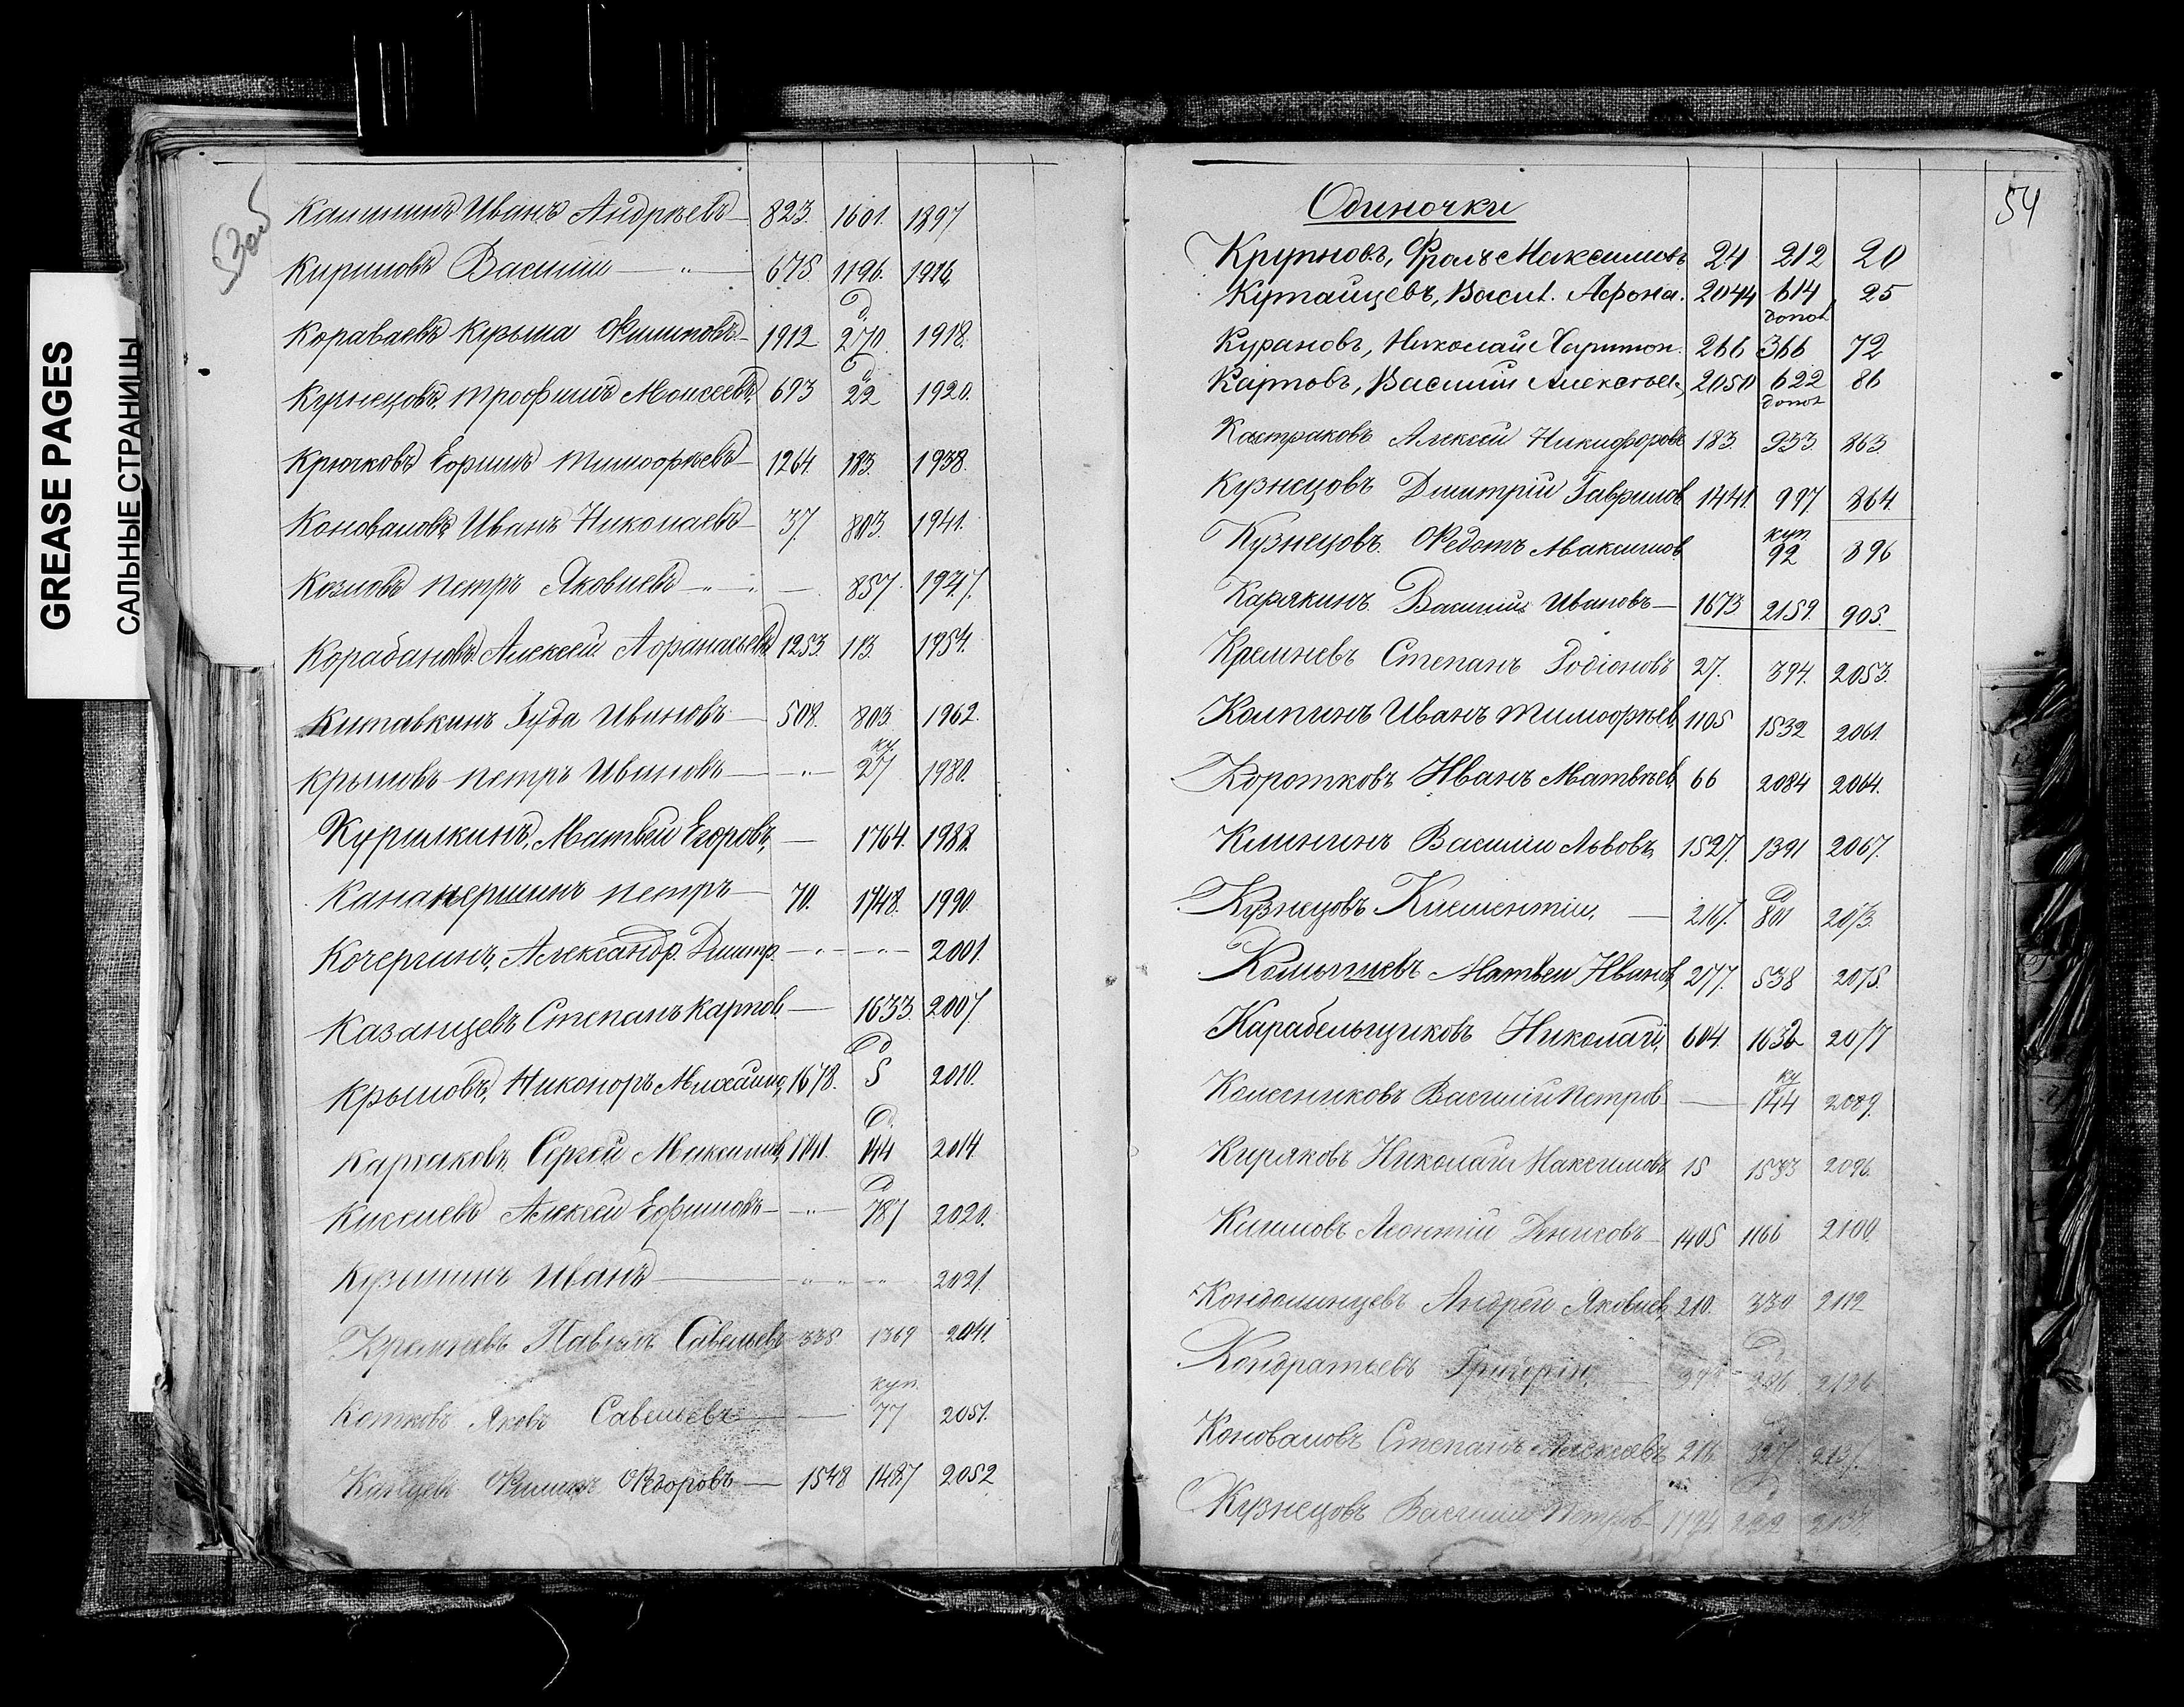 GREASE PAGES
САЛЬНЫЕ СТРАНИЦЫ
53об
Калининъ Иванъ Андреевъ — 823. 1601. 1897
Кириловъ Василий — „ — 675. 1196. 1916
Д.
Короваевъ Кузьма Филиповъ — 1912 270. 1918.
Д
Кузнецовъ, Трофимъ Моисеевъ, 693 22 1920.
Крючковъ Ефимъ Тимофѣевъ — 1264. 183. 1938.
Коноваловъ, Иванъ Николаевъ — 37. 803. 1941.
Козловъ Петръ Яковлевъ — „ — 857. 1947.
Корабановъ Алексей Афанасьевъ 1253. 113. 1954.
Китавкинъ Іуда Ивановъ — 508. 803. 1962.
ку.
Крыловъ Петръ Ивановъ — „ — 27 1980.
Курилкинъ, Матвей Егоровъ, — 1764. 1988.
Петръ — 70. 1748. 1990.
Кочергинъ, Александр. Дмитр. — „ — — „ — 2001.
Казанцевъ Степанъ Карпов. — 1633. 2007.
Д
Крыловъ, Никоноръ Михайлов, 1678. 5 2010.
Д.
Сергей Максимов, 1741. 144 2014.
Д
Киселевъ Алексей Ефимовъ — „ — 787 2020.
Кузьминъ Иванъ — „ „ — 2021.
Павелъ Савельевъ 335 1369 2041.
куп.
Котковъ Яковъ Савельевъ — — 77 2051.
Филипъ Федоровъ — 1548 1487 2052
54
Одиночки
Крупновъ, Фролъ Максимовъ 24 212 20
Кутайцевъ, Васил. Афона. 2044 614 25
допол
Курановъ, Николай Харитон. 266 366 72
Карповъ, Василий Алексѣев, 2050 622 86
допол
Кастраковъ Алексей Никифоровъ 183. 933. 863.
Кузнецовъ Дмитрий Гаврилов. 1441. 997. 864.
куп.
Кузнецовъ Федотъ Максимов. 92 896
Карякинъ Василий Ивановъ — 1673 2159. 905.
Кремневъ Степанъ Родіоновъ 27. 394. 2053.
Колпинъ Иванъ Тимофѣев, 1105 1532 2061.
Коротковъ Иванъ Матвѣев, 66 2084 2064.
Климинъ Василий Львовъ, 1527. 1391 2067.
Д
Кузнецовъ Климентій, — 217. 801 2073.
Матвей Иванов, 277. 538 2075.
Карабельщиковъ Николай, 604. 1632 2077
ку
Колесниковъ Василий Петров — 144 2089.
Киряковъ Николай Максимовъ 15 1533 2096.
Леонтій Денисовъ — 1405 1166 2100.
Андрей Яковлев, 210. 330 2112
Д
Кондратьевъ Григорій, — 206 2126
Коноваловъ Степанъ Алексѣевъ 216 327. 2137.
Д
Кузнецовъ Василий Петров — 1794 222 2138.